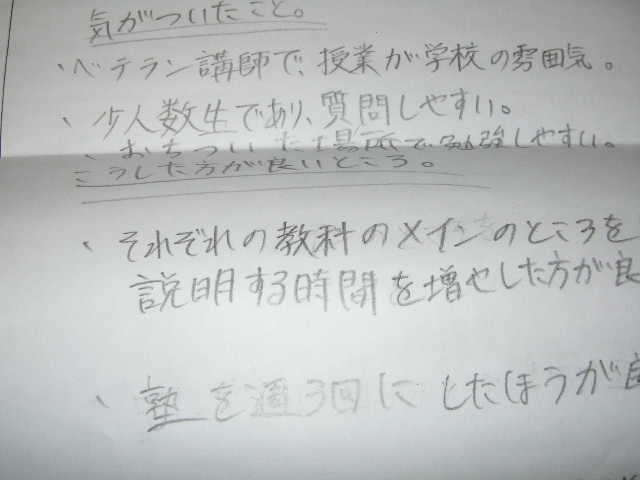 気がついたこと。
、ベテラン講師で、授業が学校の雰囲気。
、少人数生であり、質問しやすい。
、おちついた場所で勉強しやすい。
こうした方が良いところ。
、それぞれの教科のメインのところを
説明する時間を増やした方が良
、塾を週3回にしたほうが良